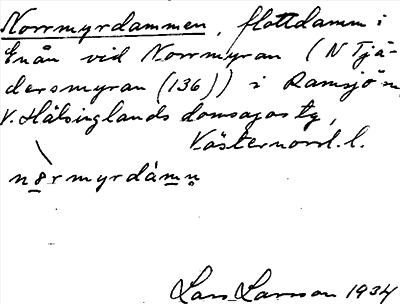 Norrmyrdammen, flottdamm i
Enån vid Norrmyran (N Tjä-
dersmyran (136)) i Ramsjö sn,
V. Hälsinglands domsagas tg,
Västernorrl. l.
Lars Larsson 1934